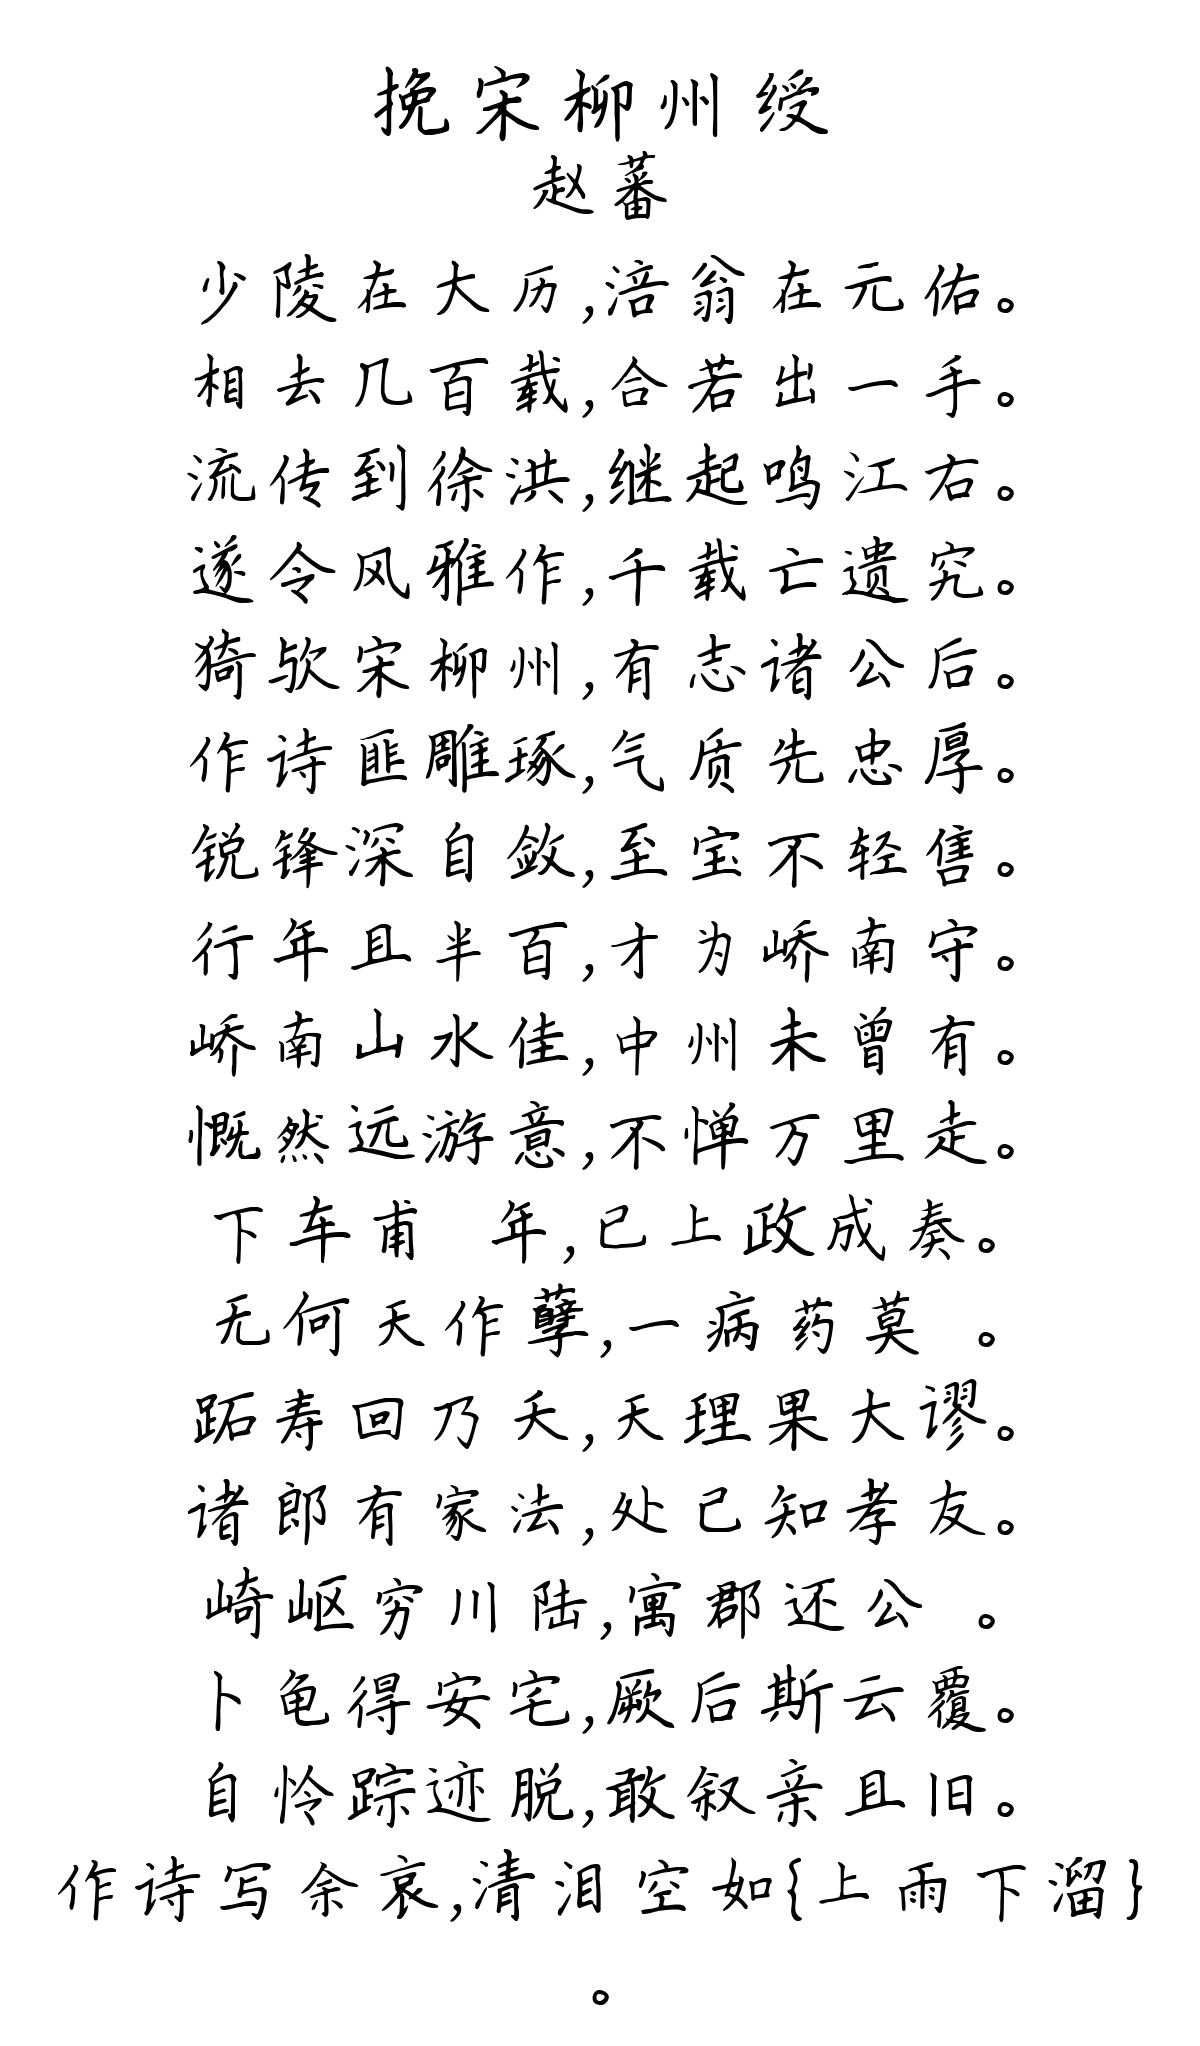 挽宋柳州绶
赵蕃
少陵在大历,涪翁在元佑。
相去几百载,合若出一手。
流传到徐洪,继起鸣江右。
遂令风雅作,千载亡遗究。
猗欤宋柳州,有志诸公后。
作诗匪雕琢,气质先忠厚。
锐锋深自敛,至宝不轻售。
行年且半百,才为峤南守。
峤南山水佳,中州未曾有。
慨然远游意,不惮万里走。
下车甫 年,已上政成奏。
无何天作孽,一病药莫 。
跖寿回乃夭,天理果大谬。
诸郎有家法,处己知孝友。
崎岖穷川陆,寓郡还公 。
卜龟得安宅,厥后斯云覆。
自怜踪迹脱,敢叙亲且旧。
作诗写余哀,清泪空如{上雨下溜}
。